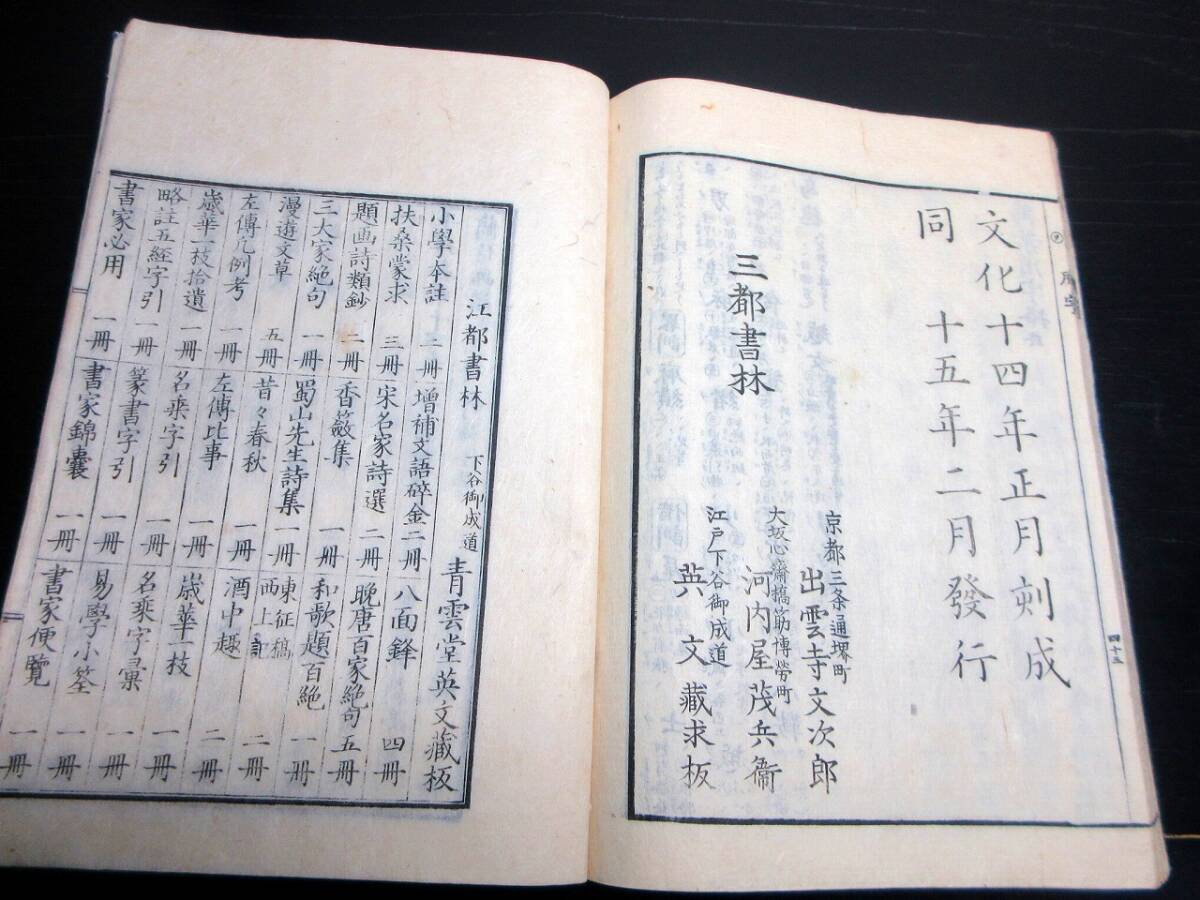 文化十四年正月刻成
同 十五年二月發行
三都書林
京都三条通堺町
出雲寺文次郎
大坂心齋橋筋博勞町
河内屋茂兵衞
江戸下谷御成道
英 文藏求板
四十五
江都書林 下谷御成道 青雲堂英文藏板
小學本註 十二冊 增補文語碎金 二冊 八面鋒 四冊
扶桑蒙求 三冊 宋名家詩選 二冊 晚唐百家絶句 五冊
題画詩類鈔 二冊 香蘞集 一冊 和歌題百絶 一冊
三大家絶句 一冊 蜀山先生詩集 一冊 東征稿 西上記 二冊
漫遊文草 五冊 昔々春秋 一冊 酒中趣 二冊
左傳凡例考 一冊 左傳比事 一冊 歳華一枝 一冊
歳華一枝拾遺 一冊 名乘字引 一冊 名乘字彙 一冊
略註五經字引 一冊 篆書字引 一冊 易學小筌 一冊
書家必用 一冊 書家錦囊 一冊 書家便覽 一冊